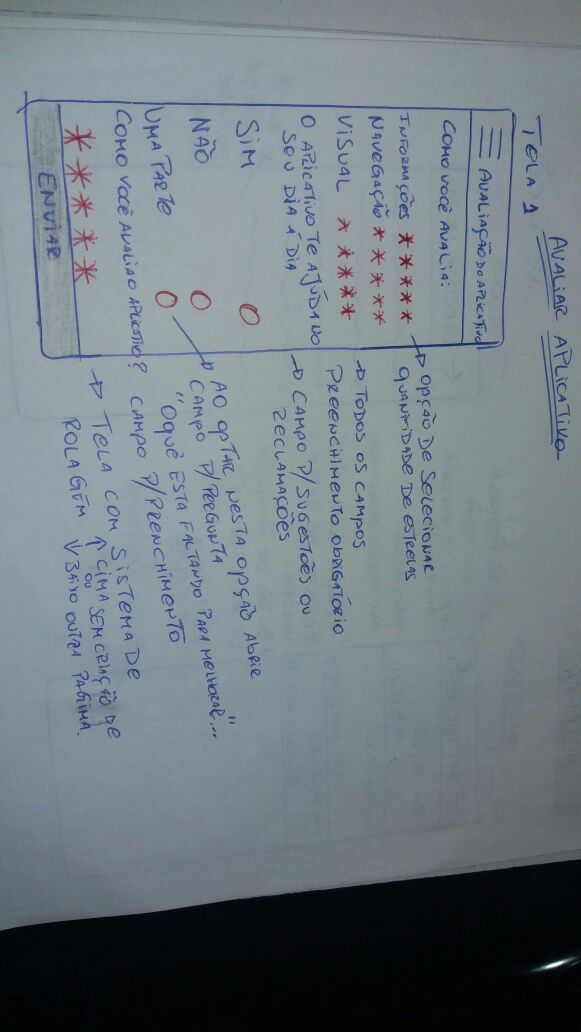 AVALIAR APLICATIVO
TELA 1
AVALIAÇÃO DO APLICATIVO
COMO VOCÊ AVALIA:
INFORMAÇÕES *****
NAVEGAÇÃO *****
VISUAL *****
O APLICATIVO TE AJÚDA NO
SEU DIA Á DIA
SIM
NÃO
UMA PARTE
COMO VOCÊ AVALIA O APLICATIVO?
*****
ENVIAR
→ OPÇÃO DE SELECIONAR
QUANTIDADE DE ESTRELAS
→ TODOS OS CAMPOS
PREENCHIMENTO OBRIGATÓRIO
→ CAMPO P/SUGESTÕES OU
RECLAMAÇÕES
AO OPTAR NESTA OPÇÃO ABRIR
CAMPO P/PERGUNTA
"OQUÊ ESTA FALTANDO PARA MELHORAR"...
CAMPO P/PRENCHIMENTO
→ TELA COM SISTEMA DE
ROLAGEM ↑ CIMA OU ↓ BAIXO SEM CRIAÇÃO DE
OUTRA PAGIMA.